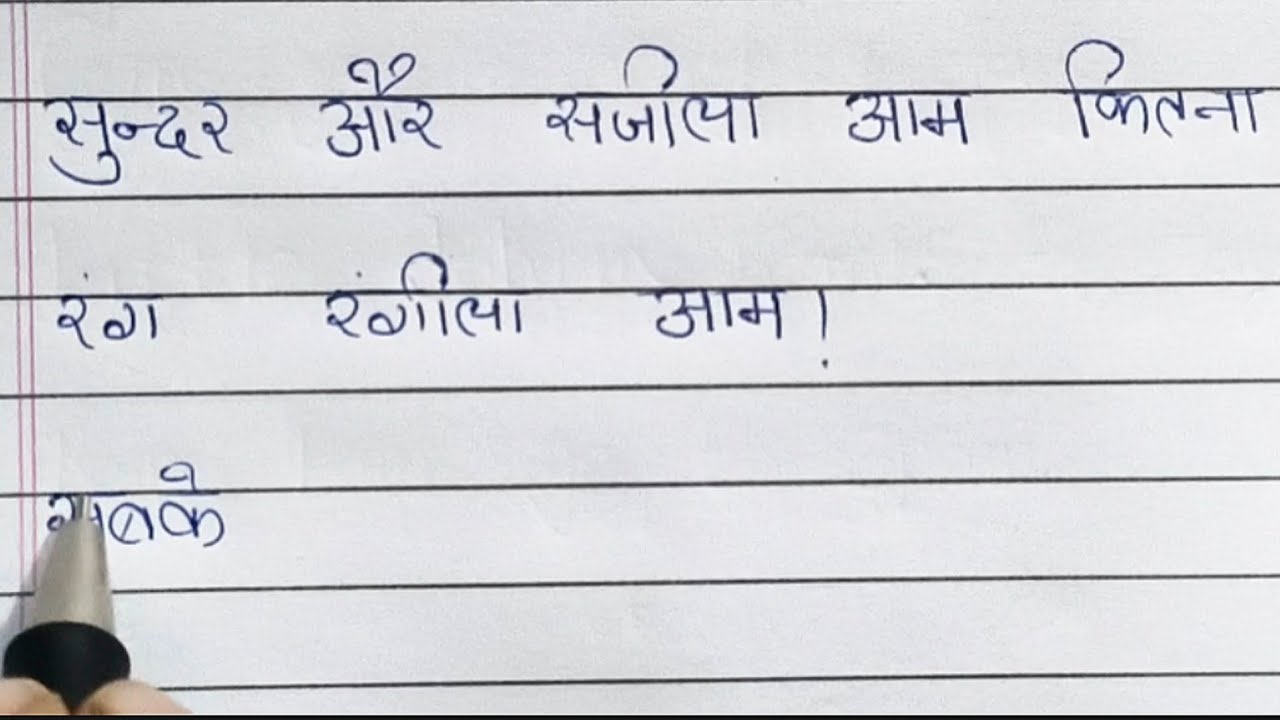 सुन्दर और सजीला आम कितना
रंग रंगीला आम!
सबके